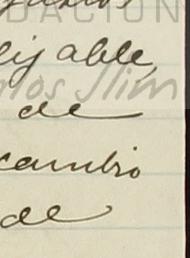 DACIÓN
lijable,
los Slim
de
cambio
de